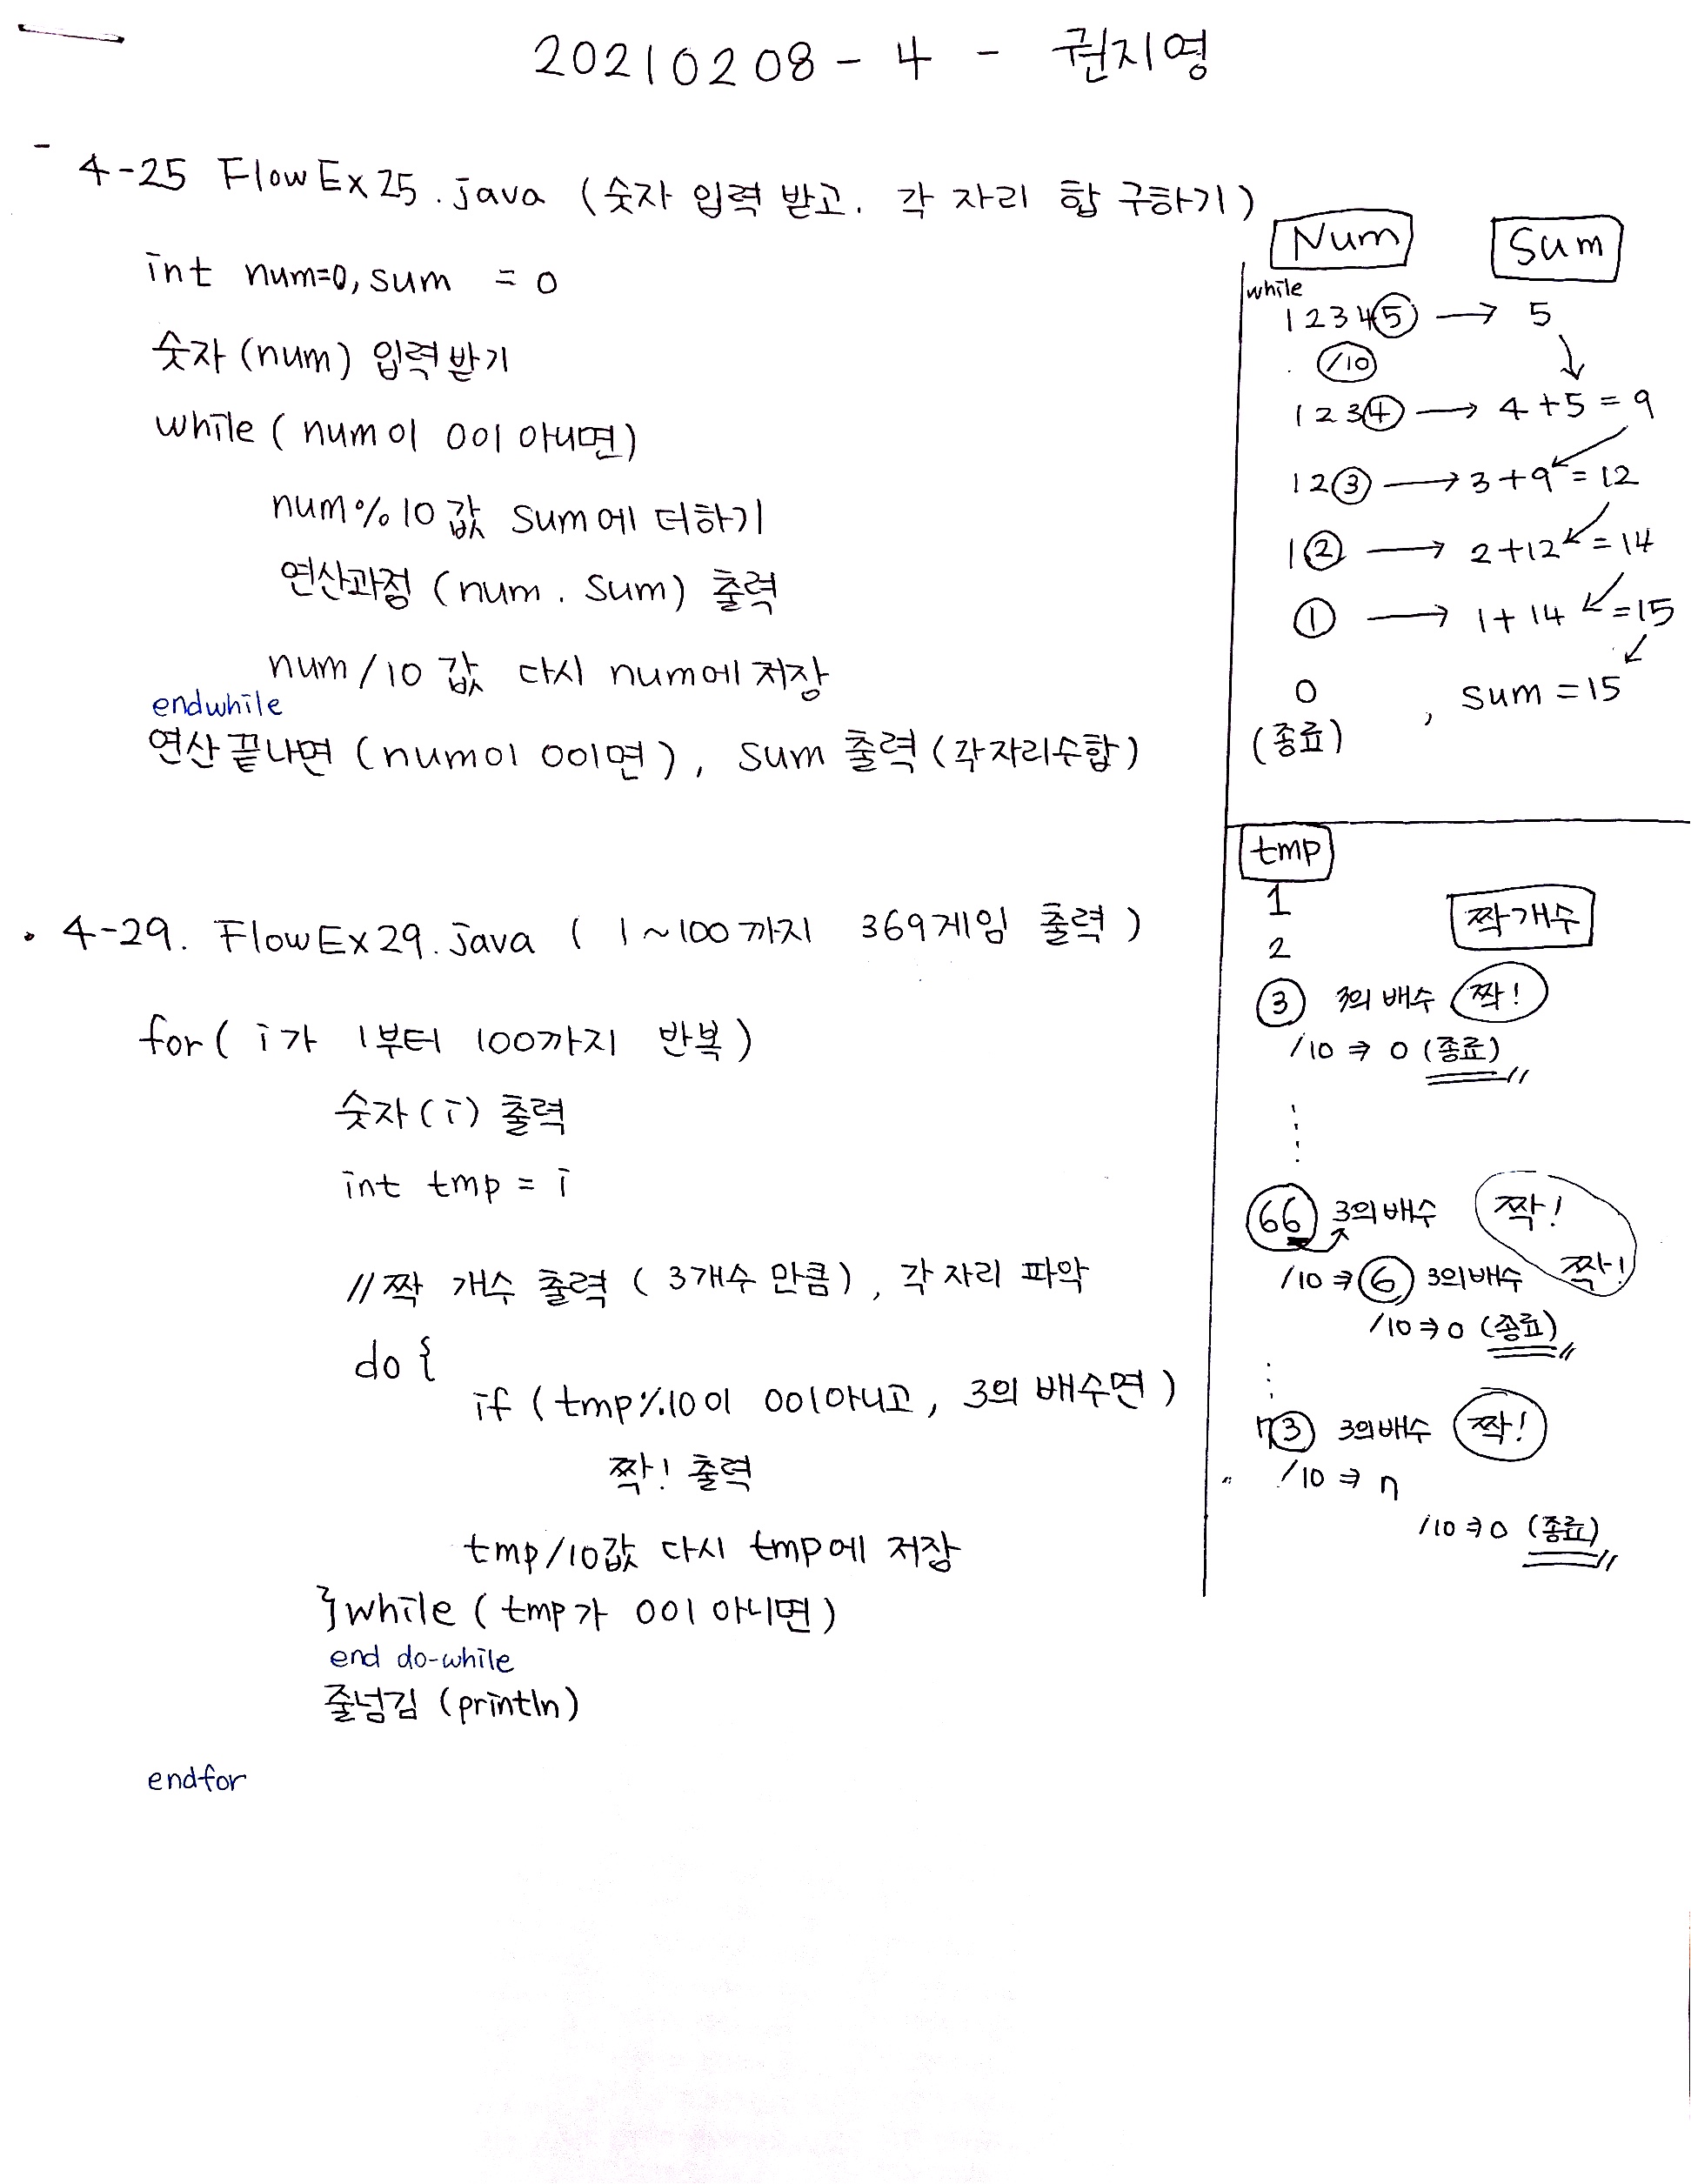 20210208 - 4 - 권지영
- 4-25 FlowEx25.java (숫자 입력 받고. 각 자리 합 구하기)
int num=0, sum = 0
숫자 (num) 입력받기
while ( num이 0이 아니면)
num%10 값 sum에 더하기
연산과정 (num . sum) 출력
num/10 값 다시 num에 저장
endwhile
연산 끝나면 (num이 0이면), sum 출력 (각자리수합)
Num Sum
while
12345 → 5
/10
1234 → 4+5=9
123 → 3+9=12
12 → 2+12=14
1 → 1+14=15
0 , sum=15
(종료)
· 4-29. FlowEx29.java ( 1~100까지 369게임 출력 )
for( i가 1부터 100까지 반복)
숫자(i) 출력
int tmp = i
//짝 개수 출력 ( 3개수 만큼), 각 자리 파악
do {
if (tmp%10이 0이아니고, 3의 배수면)
짝! 출력
tmp/10값 다시 tmp에 저장
}while (tmp가 0이 아니면)
end do-while
줄넘김 (println)
endfor
tmp
짝개수
1
2
3 3의 배수 짝!
/10 ⇒ 0 (종료)
66 3의배수 짝!
/10 ⇒ 6 3의배수 짝!
/10 ⇒ 0 (종료)
n3 3의배수 짝!
/10 ⇒ n
/10 ⇒ 0 (종료)